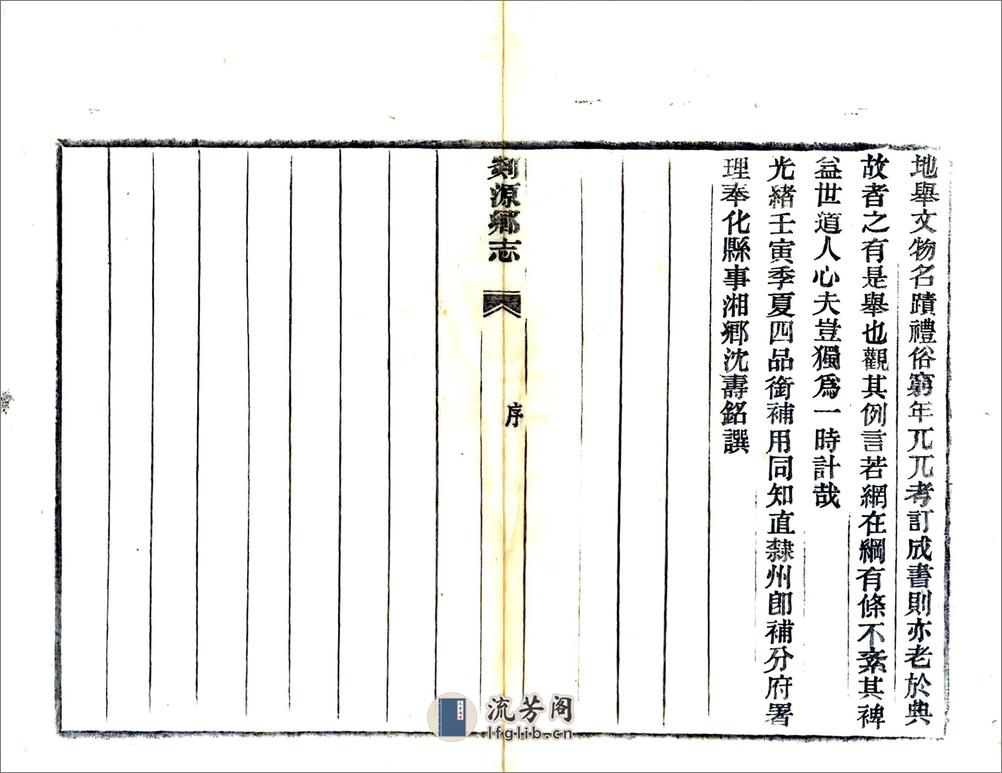 地舉文物名蹟禮俗窮年兀兀考訂成書則亦老於典
故者之有是舉也觀其例言若網在綱有條不紊其裨
益世道人心夫豈獨爲一時計哉
光緒壬寅季夏四品銜補用同知直隸州卽補分府署
理奉化縣事湘鄉沈壽銘譔
剡源鄉志
序
流芳阁
lfglib.cn